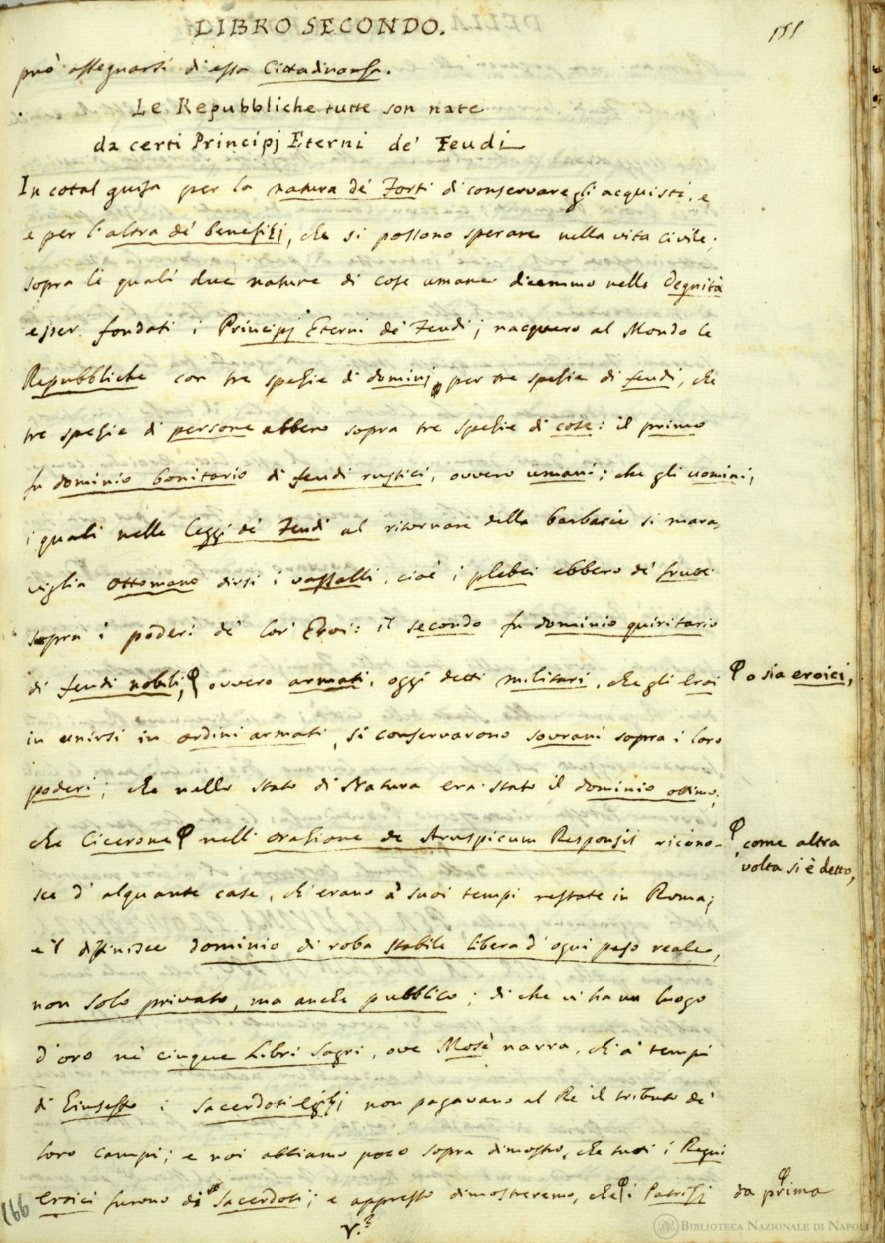 LIBRO SECONDO.
155
può assegnarsi d'essa Cittadinanza.
Le Repubbliche tutte son nate
da certi Principj Eterni de' Feudi
In cotal guisa per la natura de' Forti di conservare gli acquisti, e
e per l'altra de' benefizj, che si possono sperare nella vita civile;
sopra le quali due nature di cose umane dicemmo nelle Degnità
esser fondati i Principj Eterni de' Feudi; nacquero al Mondo le
Repubbliche con tre spezie di dominj per tre spezie di feudi, che
tre spezie di persone ebbero sopra tre spezie di cose: il primo
fu dominio bonitario di feudi rustici, ovvero umani; che gli uomini,
i quali nelle leggi de' Feudi al ritornare della barbarie si mara-
viglia Ottomano dirsi i vassalli, cioè i plebei ebbero de' frutti
sopra i poderi de' lor' Eroi: il secondo fu dominio quiritario
di feudi nobili, φ ovvero armati, oggi detti militari, che gli Eroi φ o sia eroici,
in unirsi in ordini armati, si conservarono sovrani sopra i loro
poderi; che nello stato di Natura era stato il dominio ottimo;
che Cicerone φ nell'orazione de Aruspicum Responsis ricono- φ come altra
volta si è detto,
sce d'alquante case, ch'erano a' suoi tempi restate in Roma;
e 'l diffinisce dominio di roba stabile libera d'ogni peso reale,
non solo privato, ma anche pubblico; di che vi ha un luogo
d'oro ne' cinque Libri Sagri, ove Mosè narra, ch'a' tempi
di Giuseffo i Sacerdoti egizj non pagavano al Re il tributo de'
loro campi; e noi abbiamo poco sopra dimostro, che tutti i Regni
eroici furono di Sacerdoti; e appresso dimostreremo, che φ i Patrizj φ da prima
166
BIBLIOTECA NAZIONALE DI NAPOLI